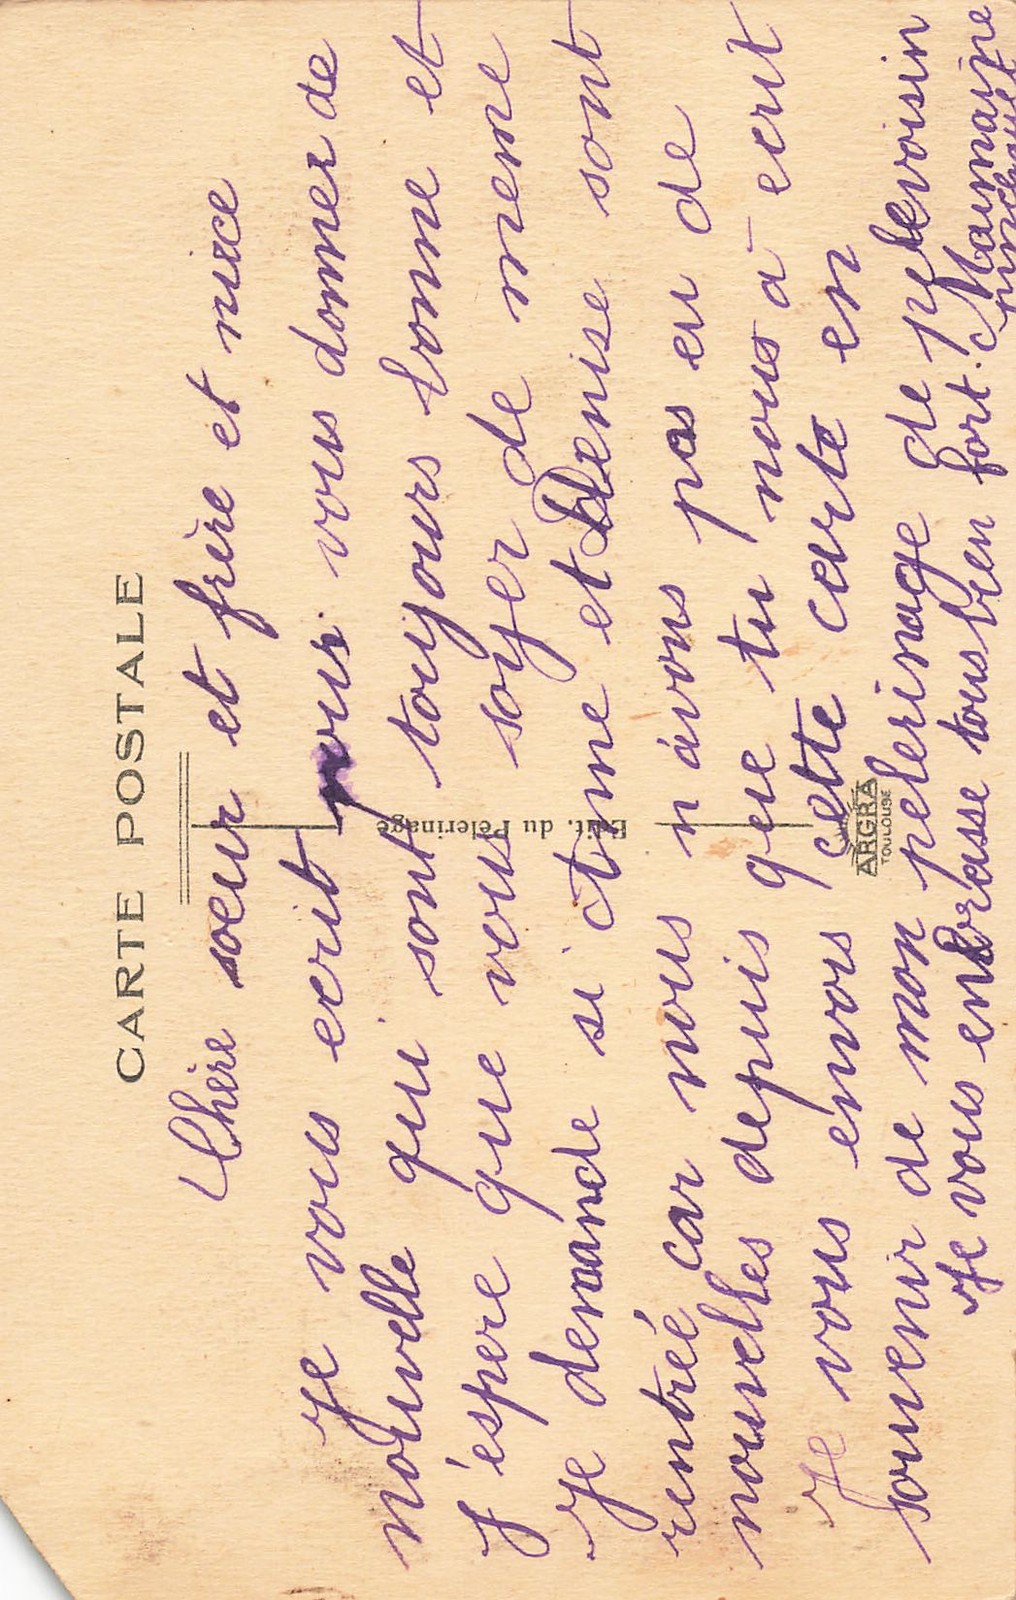 CARTE POSTALE
Chère soeur et frère et niece
Je vous ecrit pour vous donner de
nouvelle qui sont toujours bonne et
j'éspere que vous soyer de meme
Je demande si Anne et Denise sont
rentréé car nous n'avons pas eu de
nouvelles depuis que tu nous à ecrit
Je vous envois cette carte en
souvenir de mon pelerinage de pelevoisin
Je vous embrasse tous bien fort. Marraine
Edit. du Pèlerinage
ARGRA
TOULOUSE